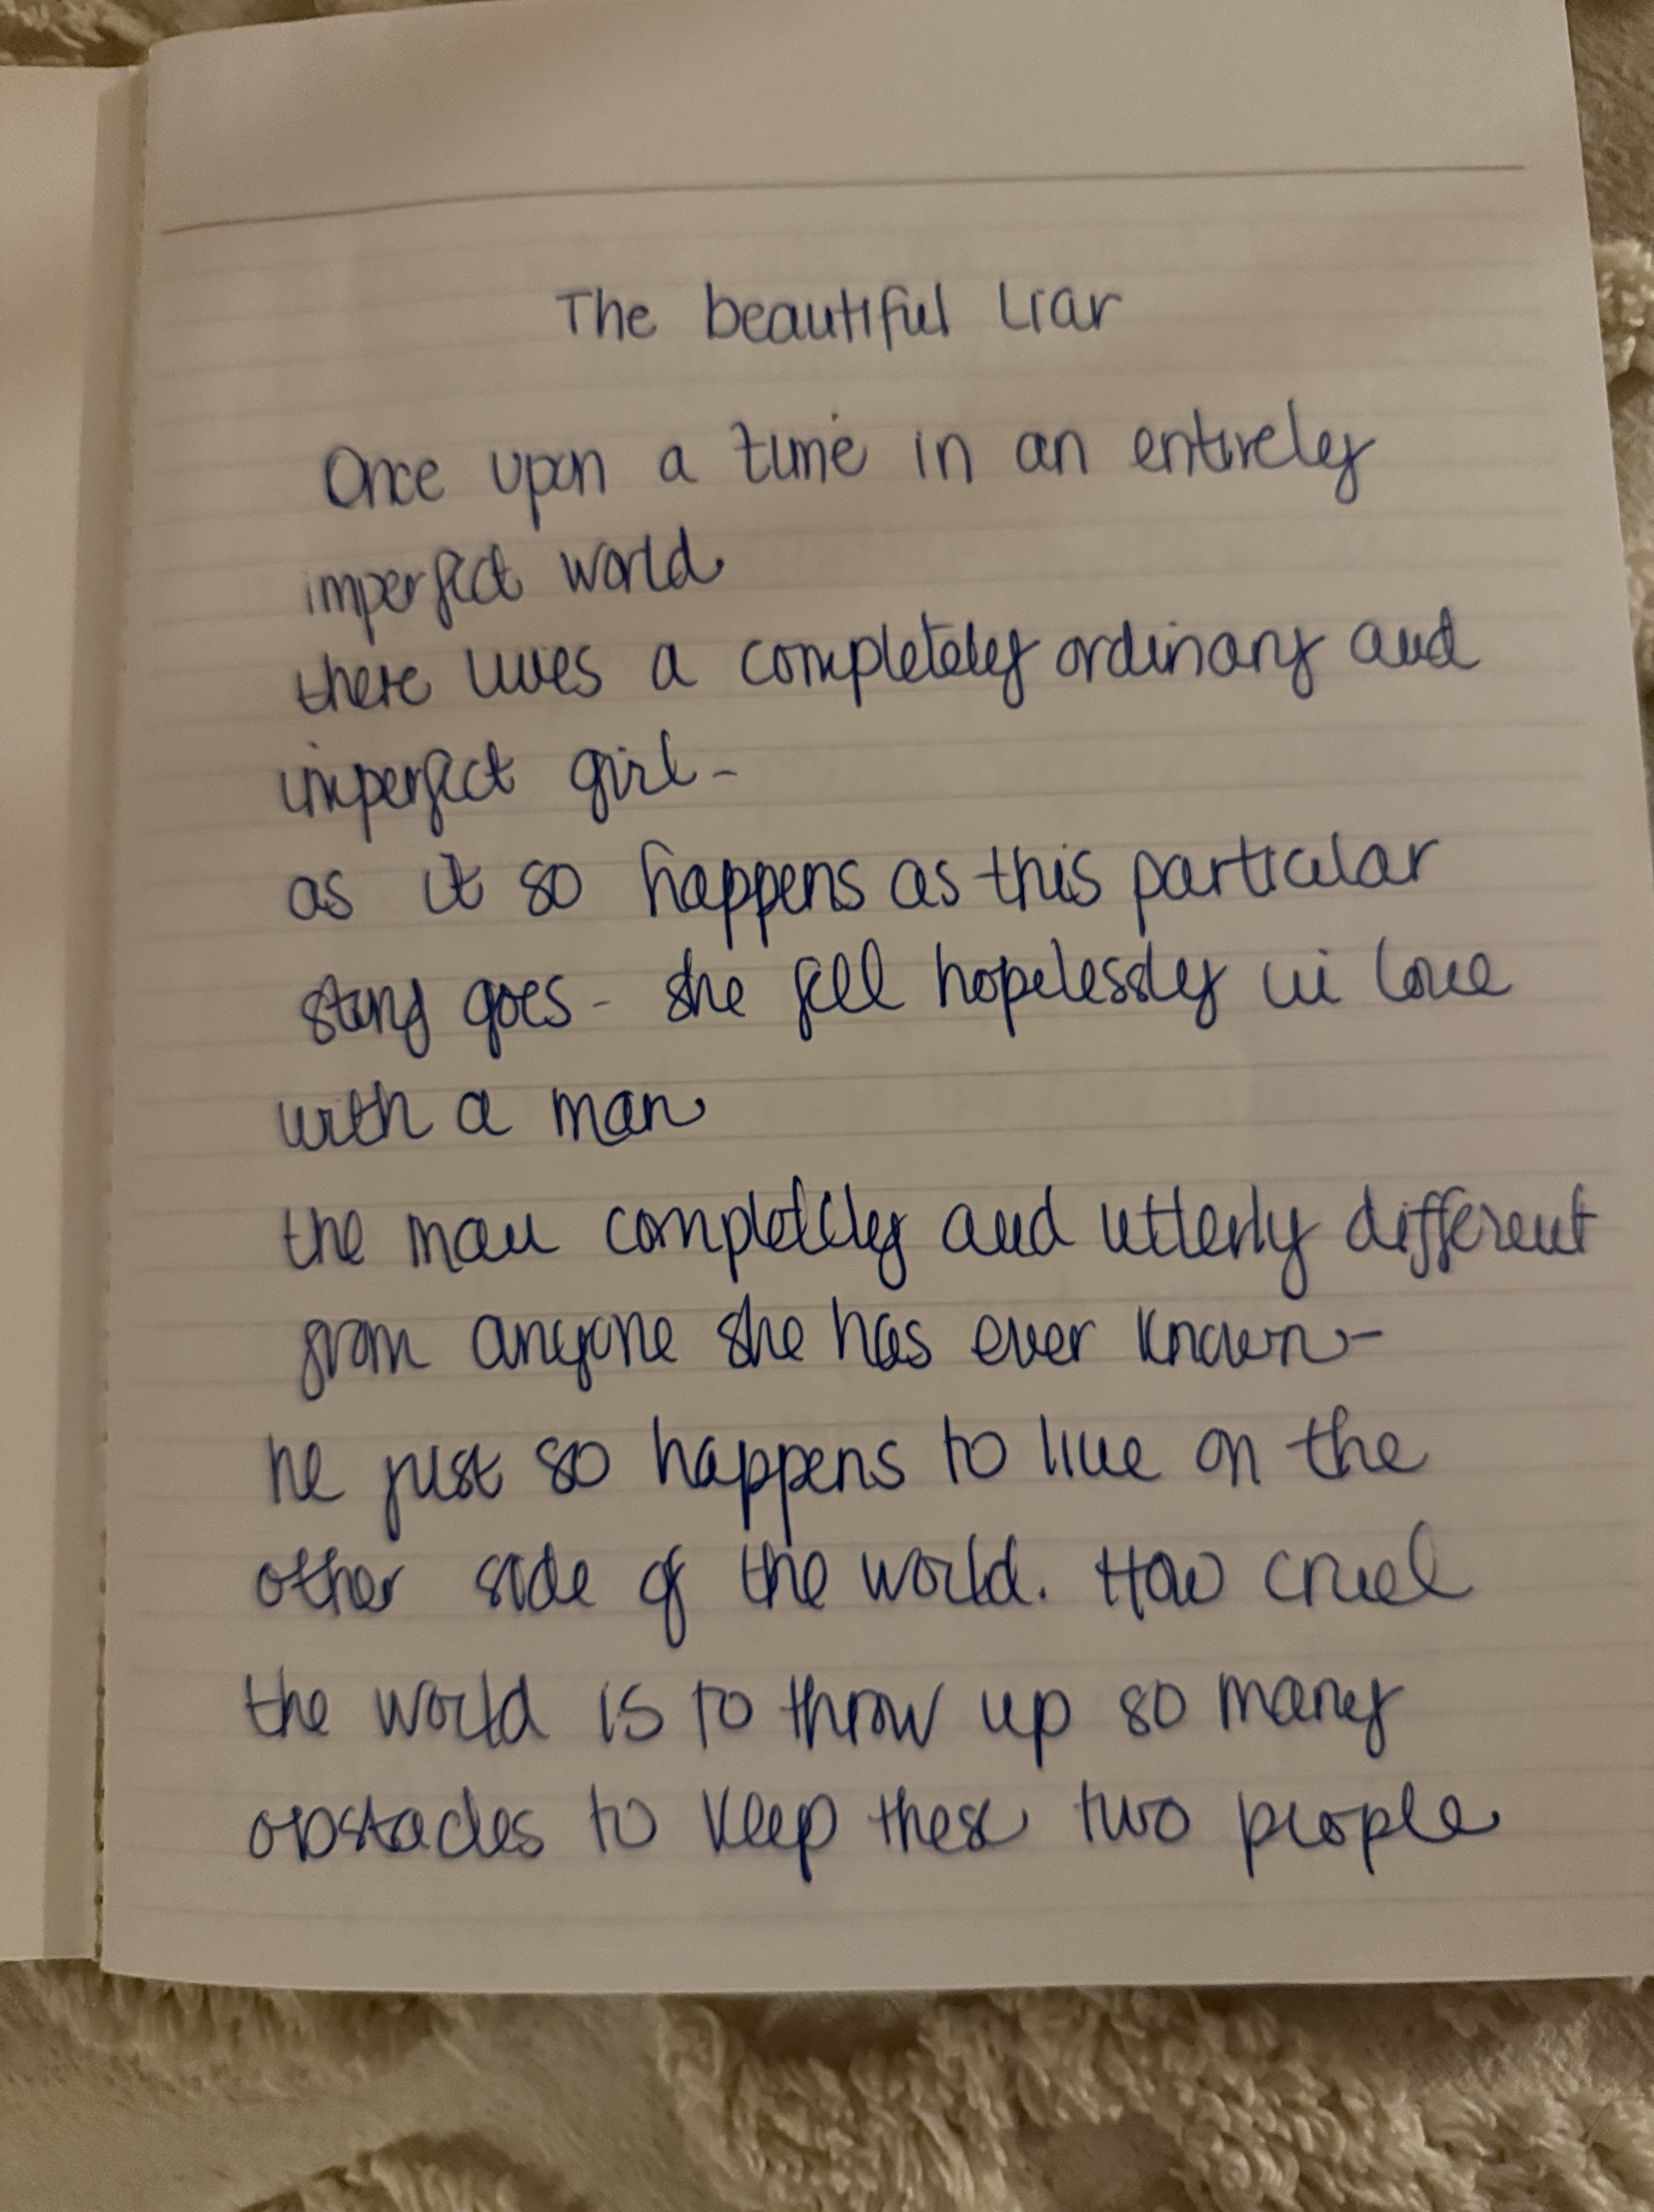 The beautiful Liar
Once upon a time in an entirely
imperfect world
there lives a completely ordinary and
imperfect girl-
as it so happens as this particular
story goes - she fell hopelessly in love
with a man
the man completely and utterly different
from anyone she has ever known-
he just so happens to live on the
other side of the world. How cruel
the world is to throw up so many
obstacles to keep these two people